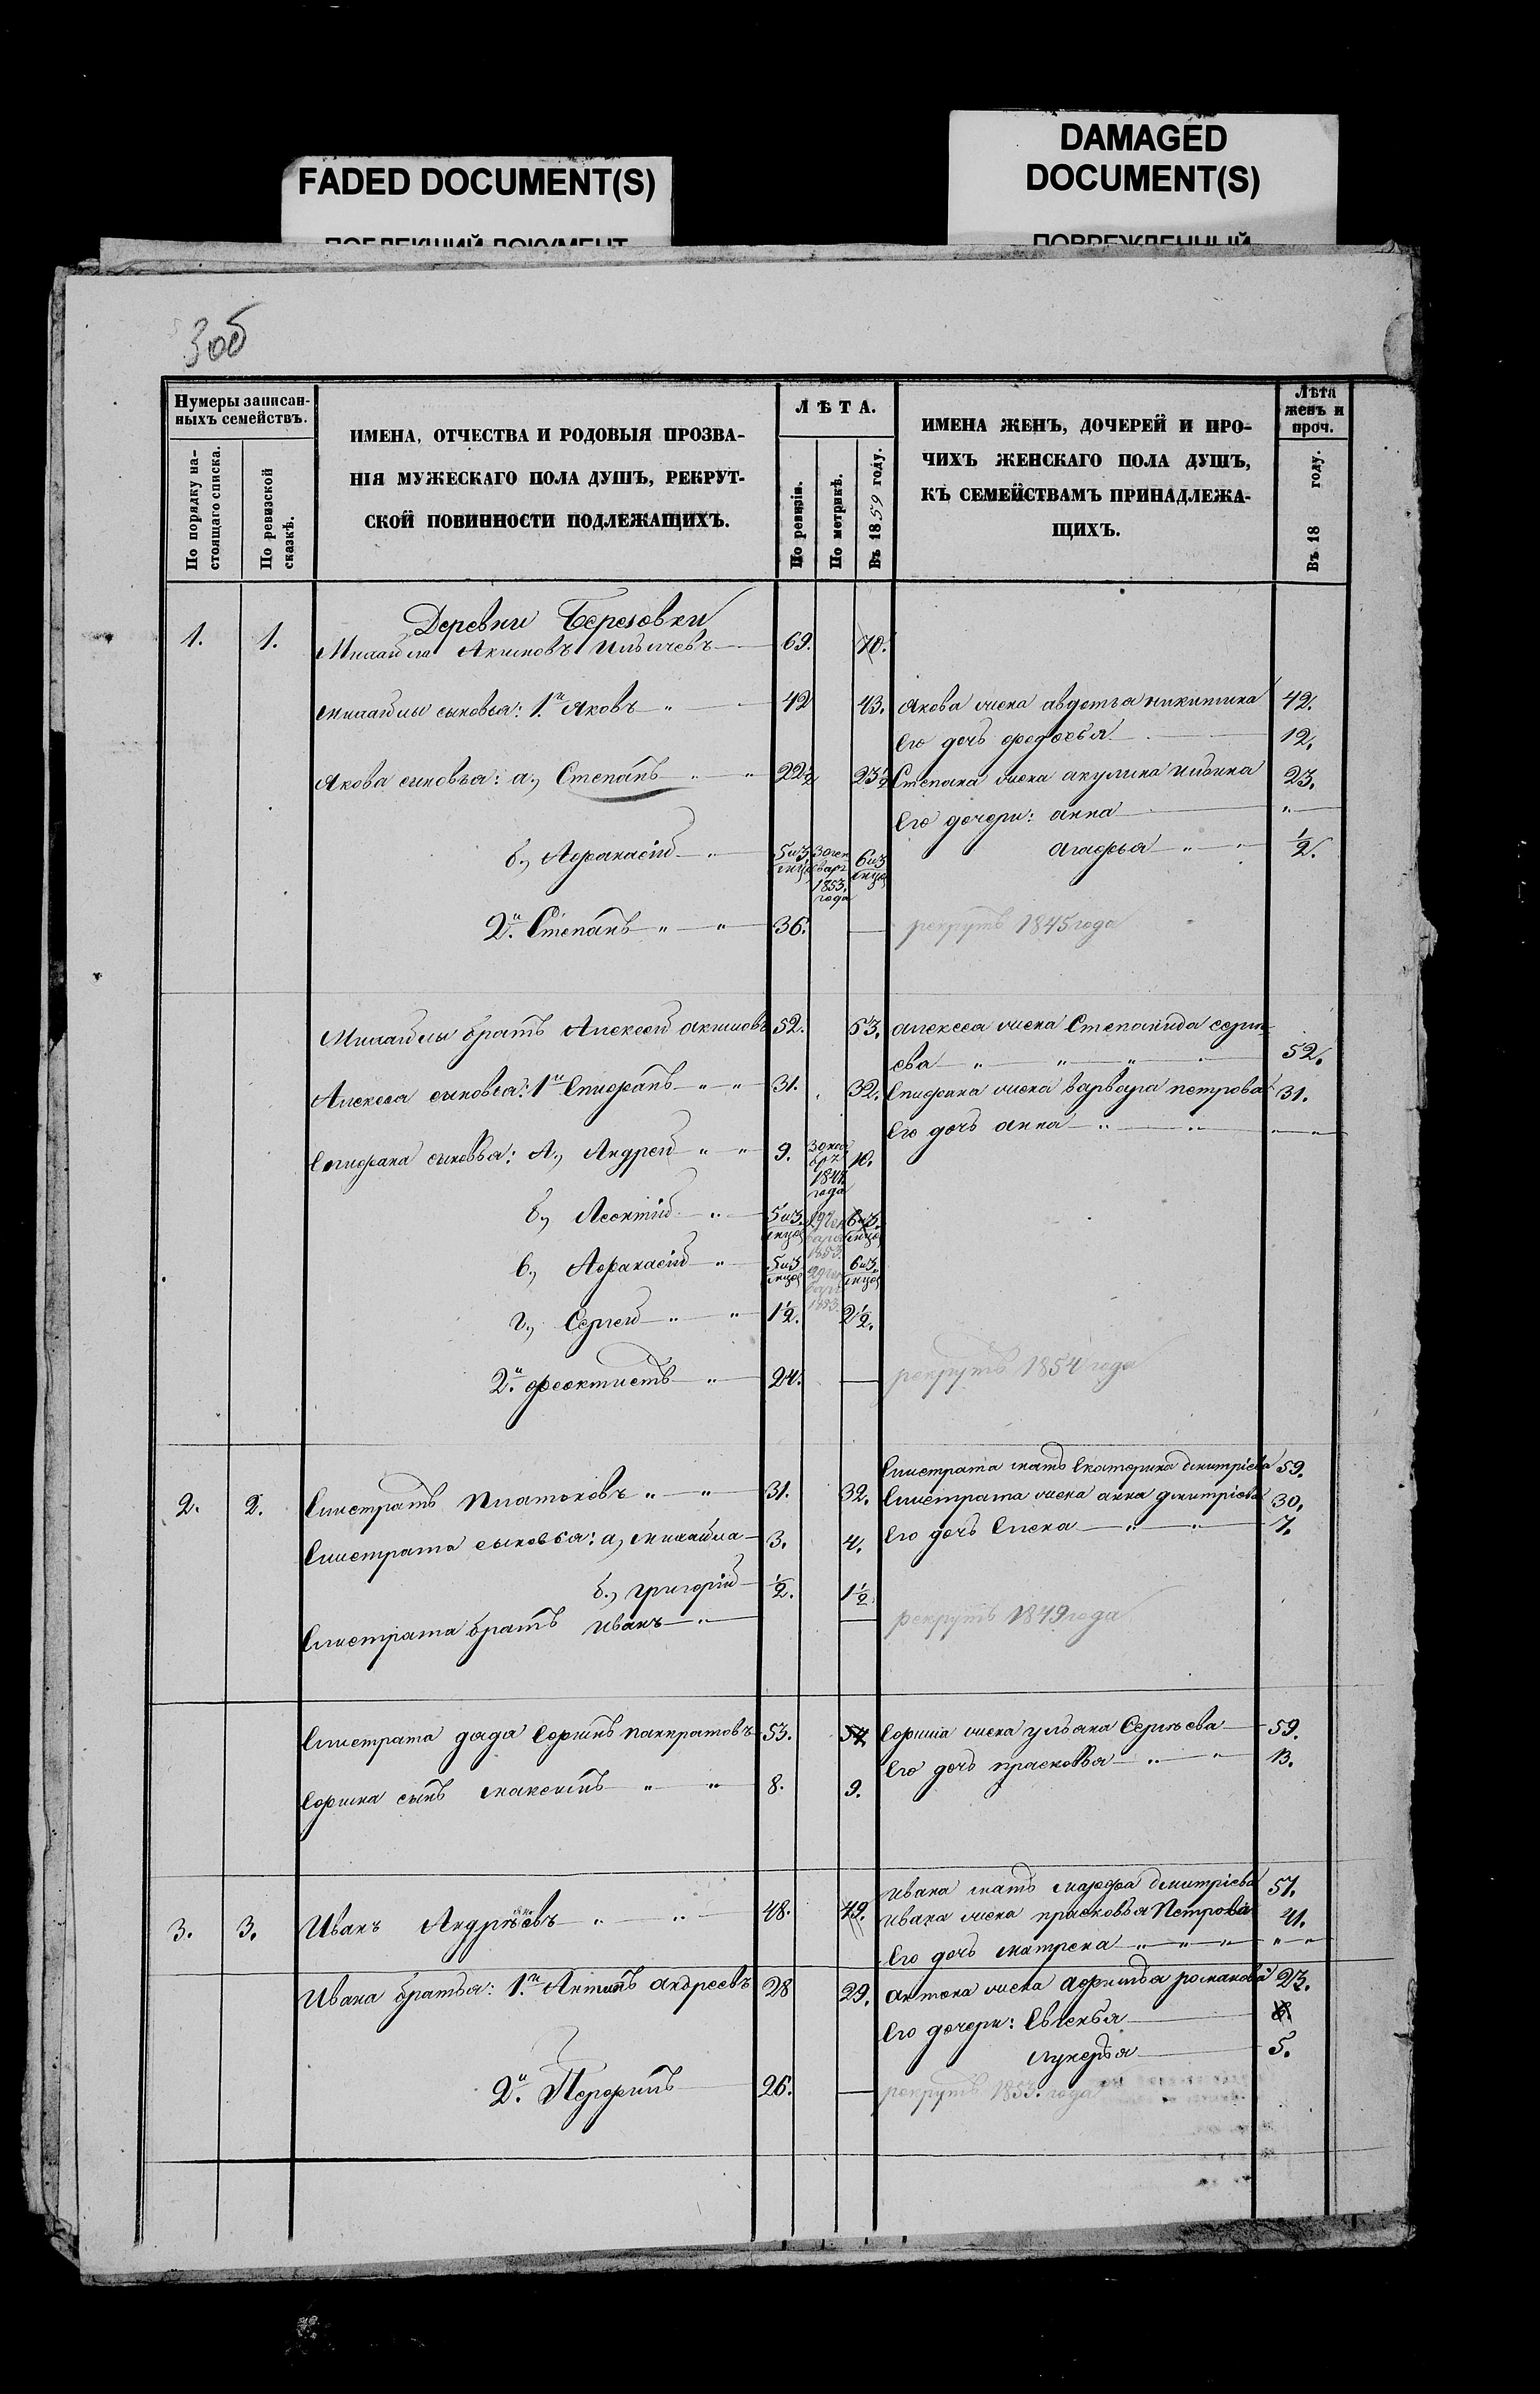 DAMAGED
DOCUMENT(S)
FADED DOCUMENT(S)
ПОБЛЕКШИЙ ДОКУМЕНТ
ПОВРЕЖДЕННЫЙ
3об
Нумеры записан-
ныхъ семействъ.
По порядку на-
стоящаго списка.
По ревизской
сказкѣ.
ИМЕНА, ОТЧЕСТВА И РОДОВЫЯ ПРОЗВА-
НІЯ МУЖЕСКАГО ПОЛА ДУШЪ, РЕКРУТ-
СКОЙ ПОВИННОСТИ ПОДЛЕЖАЩИХЪ.
ЛѢТА.
По ревизіи.
По метрикѣ.
Въ 1859 году.
ИМЕНА ЖЕНЪ, ДОЧЕРЕЙ И ПРО-
ЧИХЪ ЖЕНСКАГО ПОЛА ДУШЪ,
КЪ СЕМЕЙСТВАМЪ ПРИНАДЛЕЖА-
ЩИХЪ.
Лѣта
женъ и
проч.
Въ 18 году.
Деревни Березовки
1. 1. Михайла Акимовъ Ильичевъ 69. 70.
Михайлы сыновья: 1.й Яковъ „ 42 43. Якова жена авдотья никитина 42.
Его дочь федосья 12.
Якова сыновья: а., Степанъ „ „ 22½ 23½ Степана жена акулина 23.
Его дочери: анна „
б., Афанасій „ 5 и 3 мцов 30 генваря 1853. года 6 и 3 мцов агафья „ „ ½.
2.й Степанъ „ „ 36. — рекрутъ 1845 года
Михайлы братъ Алексей акимовъ 52. 53. алексея жена Степанида серге-
ева „ „ „ 52.
Алексея сыновья: 1й Епифанъ „ „ 31. 32. Епифана жена варвара петрова 31.
Его дочь анна „ „ „ „
Епифана сыновья: А., Андрей „ „ 9. 10.
б., Леонтій „ 5 и 3. мцов 1853. 6 и 3. мцов
в., Афанасій „ 5 и 3 мцов 1853. 6 и 3. мцов
г., Сергей „ „ 1½. 2½.
2.й феоктистъ „ 24. — рекрутъ 1854 года
Елистрата мать Екатерина дмитріева 59.
2. 2. Елистратъ Платоновъ „ „ 31. 32. Елистрата жена анна дмитріева 30.
Елистрата сыновья: а, михайла 3. 4. Его дочь Елена „ „ 7.
б., григорій ½. 1½
Елистрата братъ иванъ „ — рекрутъ 1849 года
Елистрата дядя Софинъ панкратовъ 53. 54 жена ульяна Сергѣева 59.
Его дочь прасковья „ „ 13.
сынъ максимъ „ „ 8. 9.
ивана мать марфа дмитріева 57.
3. 3. Иванъ Андрѣевъ „ „ 48. 49. ивана жена прасковья Петрова 41.
Его дочь матрена „ „ „ „ „
Ивана братья: 1.й Антонъ андреевъ 28 29. антона жена афимья романова 23.
Его дочери: Евгенья
лукерья 5.
2.й Перфилъ 26. — рекрутъ 1853. года